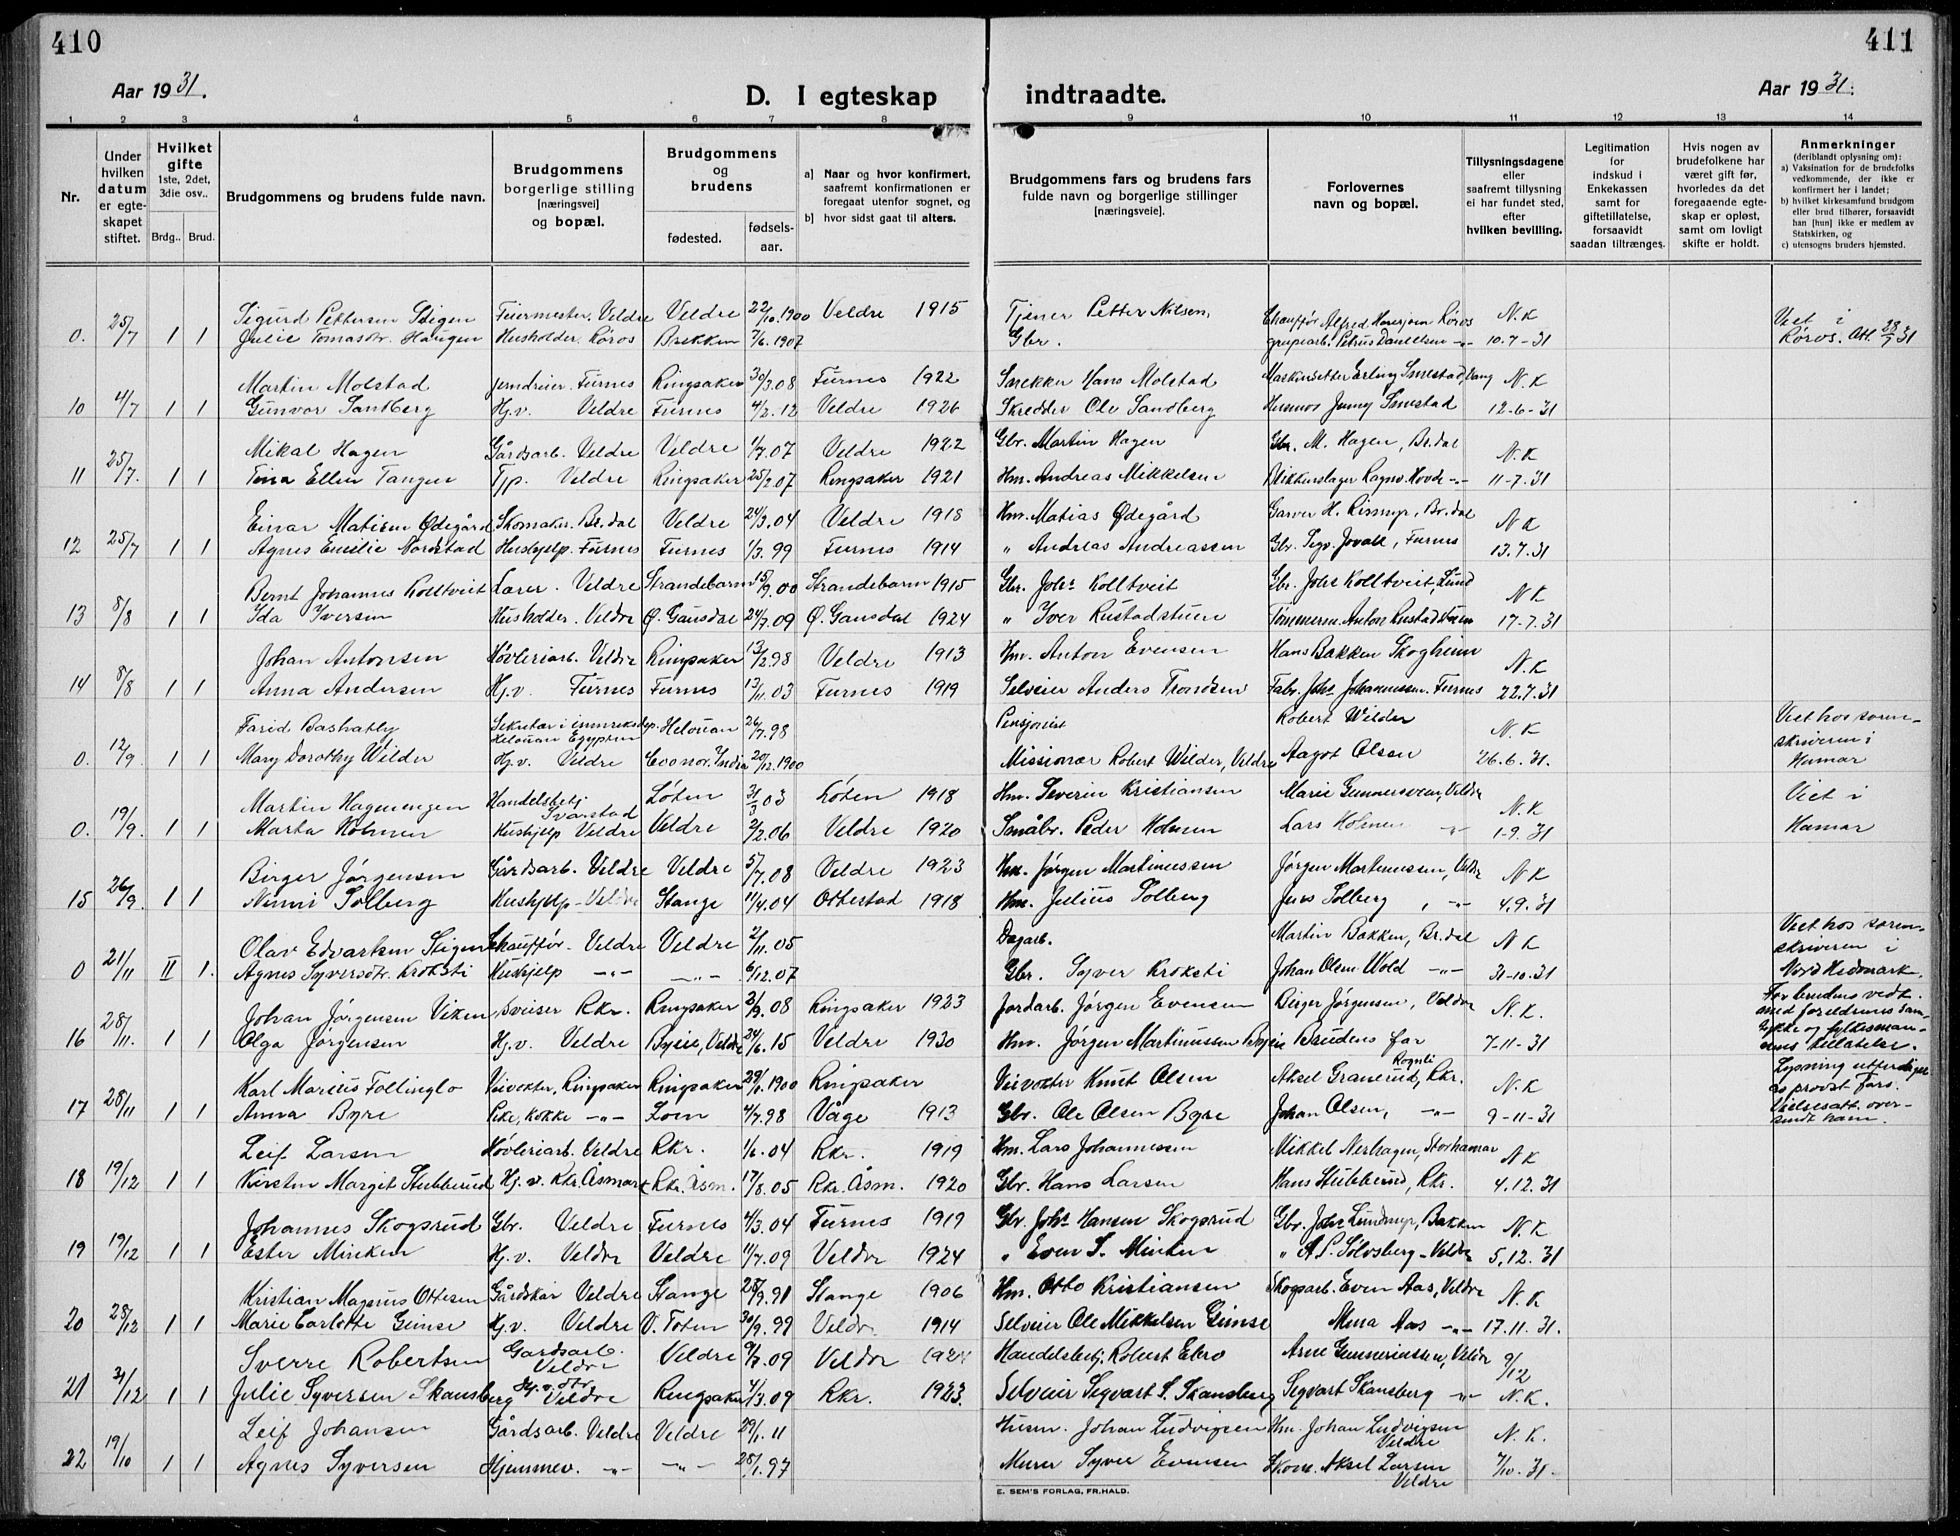 410
411
Aar 1931.
D. I egteskap
indtraadte.
Aar 1931.
1 2 3 4 5 6 7 8 9 10 11 12 13 14
Nr.
Under hvilken datum er egteskapet stiftet.
Hvilket gifte 1ste, 2det, 3die osv..
Brdg.. Brud.
Brudgommens og brudens fulde navn.
Brudgommens borgerlige stilling [næringsvei] og bopæl.
Brudgommens og brudens
fødested.
fødselsaar.
a) Naar og hvor konfirmert, saafremt konfirmationen er foregaat utenfor sognet, og
b) hvor sidst gaat til alters.
Brudgommens fars og brudens fars fulde navn og borgerlige stillinger [næringsveie].
Forlovernes navn og bopæl.
Tillysningsdagene eller saafremt tillysning ei har fundet sted, efter hvilken bevilling.
Legitimation for indskud i Enkekassen samt for giftetillatelse, forsaavidt saadan tiltrænges.
Hvis nogen av brudefolkene har været gift før, hvorledes da det foregaaende egteskap er opløst, samt om lovligt skifte er holdt.
Anmerkninger
(deriblandt oplysning om):
a) Vaksination for de brudefolks vedkommende, der ikke er konfirmert her i landet;
b) hvilket kirkesamfund brudgom eller brud tilhører, forsaavidt han [hun] ikke er medlem av Statskirken, og
c) utensogns bruders hjemsted.
Sigurd Pettersen Stigen Feiermester. Veldre Veldre 22/10.1900 Veldre 1915 Tjener Petter Nilsen, Chauffør Alfred Røros N.K Viet i
0. 25/7 1 1 Julie Tomasdtr. Haugen Husholder. Røros Brekken 7/6.1907 Gbr. Petrus Daniellsen -"- 10.7-31 Røros. Att. 28/7 31
Martin Molstad Jerndreier. Furnes Ringsaker 30/3.08 Furnes 1922 Snekker Hans Molstad Maskinsetter Erling Smestad, Vang N.K
10 4/7 1 1 Gunvor Sandberg Hj.v. Veldre Furnes 4/2.12 Veldre 1926 Skredder Ole Sandberg Husmor Jenny Smestad 12-6-31
Mikal Hagen Gårdsarb. Veldre Veldre 1/7.07 Veldre 1922 Gbr. Martin Hagen Gbr. M. Hagen, Br.dal N.K
11 25/7. 1 1 Tina Ellen Tangen Tjp. Veldre Ringsaker 25/2.07 Ringsaker 1921 Hm. Andreas Mikkelsen Blikkenslager Ragnv. Hovde -"- 11-7.31
Einar Matisen Ødegård Skomaker. Br.dal Veldre 24/3.04 Veldre 1918 Hm. Matias Ødegård Garver H. , Br.dal N K
12 25/7 1 1 Agnes Emilie Nordstad Hushjelp. Furnes Furnes 1/3.99 Furnes 1914 " Andreas Andreassen Gbr. Segv. Jovall, Furnes 13.7.31
Bernt Johannes Kolltveit Lærer. Veldre Strandebarm 15/9.00 Strandebarm 1915 Gbr. Johs. Kolltveit Gbr. Johs Kolltveit, Lund N K
13 8/8 1 1 Ida Iversen Husholder. Veldre Ø. Gausdal 24/7.09 Ø. Gausdal 1924 " Iver Rustadstuen Tømmerm. Anton Rustadstuen 17-7.31
Johan Antonsen Høvleriarb. Veldre Ringsaker 13/2.98 Veldre 1913 Hm. Anton Evensen Hans Bakken Skogheim N.K
14 8/8 1 1 Anna Andersen Hj.v. Furnes Furnes 13/11.03 Furnes 1919 Selveier Anders Trondsen Fabr. Johs. Johannessen. Furnes 22.7.31
Farid Bashatly Sekretær i Helouan 26/7.98 Pensjonist Robert Wilder N.K Viet hos soren-
Helouan Egypten skriveren i
0. 12/9 1 1 Mary Dorothy Wilder Hj.v. Veldre Coonor. India 20/12.1900 Missionær Robert Wilder, Veldre Aagot Olsen 26.6.31. Hamar
Martin Hagenengen Handelsbetj. Løten 31/3 03 Løten 1918 Hm. Severin Kristiansen Marie Gunnersveen, Veldre N.K Viet i
Ivarstad
0. 19/9. 1 1 Marta Holmen Hushjelp Veldre Veldre 2/2.06 Veldre 1920 Småbr. Peder Holmen Lars Holmen -"- 1-9.31 Hamar
Birger Jørgensen Gårdsarb. Veldre Veldre 5/7.08 Veldre 1923 Hm. Jørgen Martinussen Jørgen Martinussen, Veldre N K
15 26/9 1 1 Nimi Solberg Hushjelp - Veldre Stange 11/4.04 Ottestad 1918 Hm. Julius Solberg Jens Solberg , -"- 4.9.31
Olav Edvartsen Stigen Chauffør - Veldre Veldre 2/11.05 Dagarb. Martin Bakken, Br.dal N K Viet hos soren-
skriveren i
0 21/11 II 1. Agnes Syversdtr. Kroksti Hushjelp -"- -"- 6/12.07 Gbr. Syver Kroksti Johan Olsen Wold -"- 31-10.31 Nord Hedmark.
Johan Jørgensen Viken Sveiser Rkr. Ringsaker 2/9.08 Ringsaker 1923 Jordarb. Jørgen Evensen Birger Jørgensen, Veldre N.K. For brudens vedk.
med foreldrenes sam-
tykke og fylkesman-
16 28/11. 1 1 Olga Jørgensen Hj.v. Veldre , Veldre 24/6.15 Veldre 1930 Hm. Jørgen Martinussen Brudens far 7-11-31 nens tillatelse.
Karl Marius Follinglo Veivokter, Ringsaker Ringsaker 29/1.1900 Ringsaker Veivokter Knut Olsen Aksel Granerud, Rkr. N.K Lysning utferdiget
av provst Fars.
17 28/11 1 1 Anna Byre Rkr, kokke -"- Lom 4/7.98 Våge 1913 Gbr. Ole Olsen Byre Johan Olsen, -"- 9-11-31 Vielsesatt. over-
sendt ham.
Leif Larsen Høvleriarb. Veldre Rkr. 1/6.04 Rkr. 1919 Hm. Lars Johannessen Mikkel Nerhagen, Storhamar N K
18 19/12 1 1 Kirsten Margit Stubberud Hj.v. Rkr. Åsmark Rkr. Åsm. 17/8.05 Rkr. Åsm. 1920 Gbr. Hans Larsen Hans Stubberud, Rkr. 4.12.31
Johannes Skogsrud Gbr. Veldre Furnes 4/3.04 Furnes 1919 Gbr. Johs. Hansen Skogsrud Gbr. Johs Lundmyr, Bakken N.K.
19 19/12 1 1 Ester Minken Hj.v. Veldre Veldre 11/7.09 Veldre 1924 " Even S. Minken " A.P. Solvsberg - Veldre 5.12.31
Kristian Magnus Ottesen Gårdskar Veldre Stange 28/9.91 Stange 1906 Hm. Otto Kristiansen Skogsarb. Even Aas, Veldre N.K
20 28/12 1 1 Marie Carlotte Gimse Hj.v. Veldre V. Toten 30/9.99 Veldre 1914 Selveier Ole Mikkelsen Gimse Mina Aas -"- 17.11.31.
Sverre Robertsen Gardsarb. Veldre Veldre 9/7.09 Veldre 1924 Handelsbetj. Robert Arne Gunneriussen, Veldre 9/12
21 31/12 1 1 Julie Syversen Skansberg Hj.v. Veldre Ringsaker 4/3.09 Rkr. 1923. Selveier Segvart S. Skansberg Segvart Skansberg -"- N.K.
Leif Johansen Gårdsarb. Veldre Veldre 29/1.11 Husm. Johan Ludvigsen Hm. Johan Ludvigsen N.K.
Veldre
22 19/10 1 1 Agnes Syversen Hjemmev. -"- -"- 28/1.97 Murer Syver Evensen Skom. Aksel Larsen 7/10.31.
Veldre
E. SEM'S FORLAG, FR.HALD.